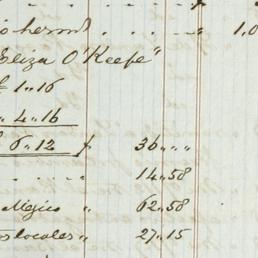 herm " 1.0
Eliza O'Keefe"
1.,16
" 4.,16
6.,12 36.,.,
14.,58
Mejico " 62.,58
locales " 27.,15